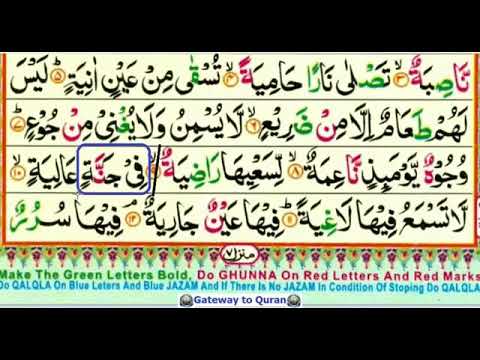 نَّاصِبَةٌ ۙ﴿۳﴾ تَصْلٰى نَارًا حَامِيَةً ۙ﴿۴﴾ تُسْقٰى مِنْ عَيْنٍ اٰنِيَةٍ ؕ﴿۵﴾ لَيْسَ
لَهُمْ طَعَامٌ اِلَّا مِنْ ضَرِيْعٍ ۙ﴿۶﴾ لَّا يُسْمِنُ وَلَا يُغْنِيْ مِنْ جُوْعٍ ؕ﴿۷﴾
وُجُوْهٌ يَّوْمَئِذٍ نَّاعِمَةٌ ۙ﴿۸﴾ لِّسَعْيِهَا رَاضِيَةٌ ۙ﴿۹﴾ فِيْ جَنَّةٍ عَالِيَةٍ ۙ﴿۱۰﴾
لَّا تَسْمَعُ فِيْهَا لَاغِيَةً ؕ﴿۱۱﴾ فِيْهَا عَيْنٌ جَارِيَةٌ ۘ﴿۱۲﴾ فِيْهَا سُرُرٌ
منزل ۷
Make The Green Letters Bold, Do GHUNNA On Red Letters And Red Marks
Do QALQLA On Blue Leters And Blue JAZAM And If There Is No JAZAM In Condition Of Stoping Do QALQLA
Gateway to Quran